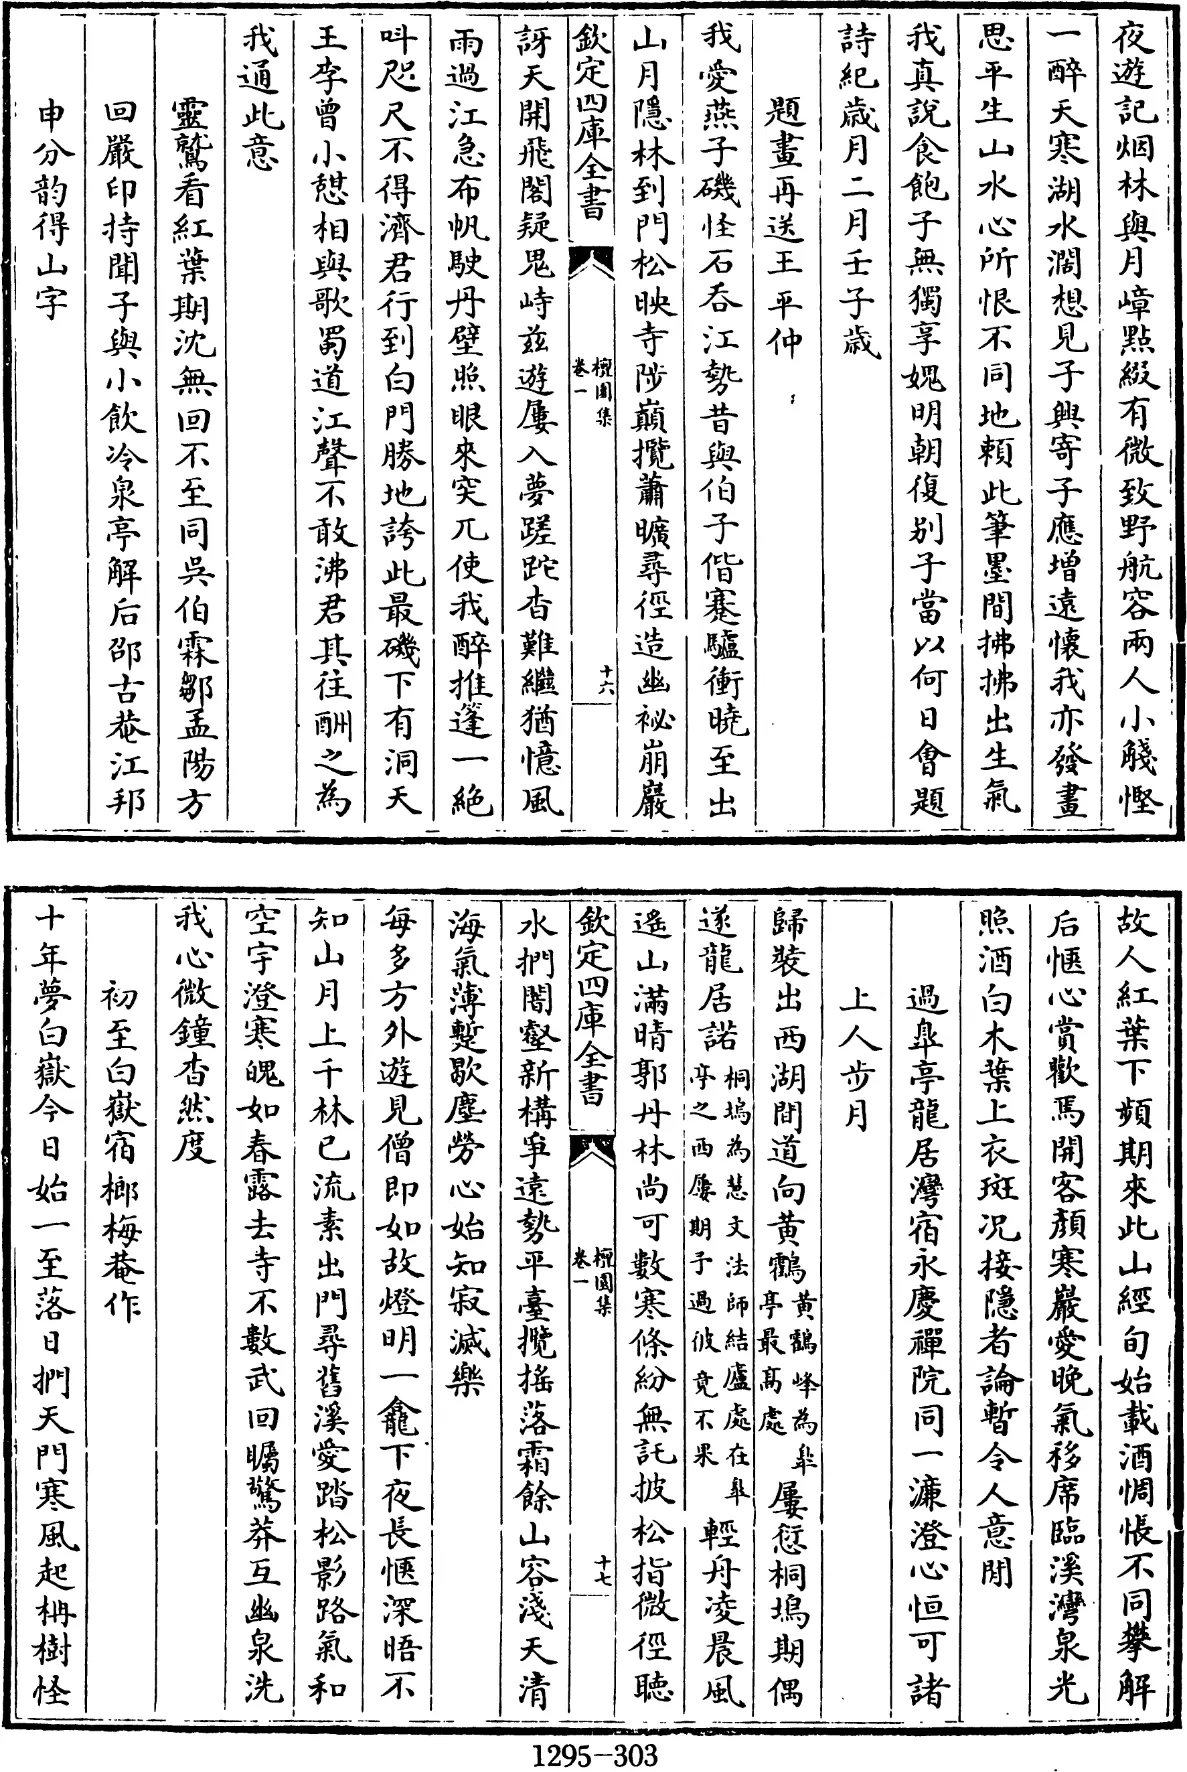 夜遊記烟林與月嶂點綴有微致野航容兩人小觴慳
一醉天寒湖水濶想見子興寄子應增遠懷我亦發畫
思平生山水心所恨不同地頼此筆墨間拂拂出生氣
我真說食飽子無獨享媿明朝復别子當以何日會題
詩紀歳月二月壬子歳
題畫再送王平仲
我愛燕子磯怪石吞江勢昔與伯子偕蹇驢衝曉至出
山月隱林到門松映寺陟巔攬蕭曠尋徑造幽祕崩巖
欽定四庫全書
檀園集
卷一
十六
訝天開飛閣疑鬼峙兹遊屢入夢蹉跎杳難繼猶憶風
雨過江急布帆駛丹壁照眼來突兀使我醉推篷一絶
呌咫尺不得濟君行到白門勝地誇此最磯下有洞天
王李曾小憇相與歌蜀道江聲不敢沸君其往酬之為
我通此意
靈鷲看紅葉期沈無回不至同吳伯霖鄒孟陽方
回嚴印持聞子與小飲冷泉亭解后邵古菴江邦
申分韵得山字
故人紅葉下頻期來此山經旬始載酒惆悵不同攀解
后愜心賞歡焉開客顔寒巖愛晚氣移席臨溪灣泉光
照酒白木葉上衣斑况接隱者論暫令人意閒
過臯亭龍居灣宿永慶禪院同一濂澄心恒可諸
上人步月
歸裝出西湖間道向黃鶴黄鶴峰為臯亭最髙處屢愆桐塢期偶
遂龍居諾桐塢為慧文法師結廬處在臯亭之西屢期予過彼竟不果輕舟凌晨風
遥山滿晴郭丹林尚可數寒條紛無託披松指微徑聽
欽定四庫全書
檀園集
卷一
十七
水捫闇壑新構爭遠勢平臺攬搖落霜餘山容淺天清
海氣薄蹔歇塵勞心始知寂滅樂
每多方外遊見僧即如故燈明一龕下夜長愜深晤不
知山月上千林已流素出門尋舊溪愛踏松影路氣和
空宇澄寒魄如春露去寺不數武回矚驚莽互幽泉洗
我心微鐘杳然度
初至白嶽宿榔梅菴作
十年夢白嶽今日始一至落日捫天門寒風起栴樹怪
1295-303